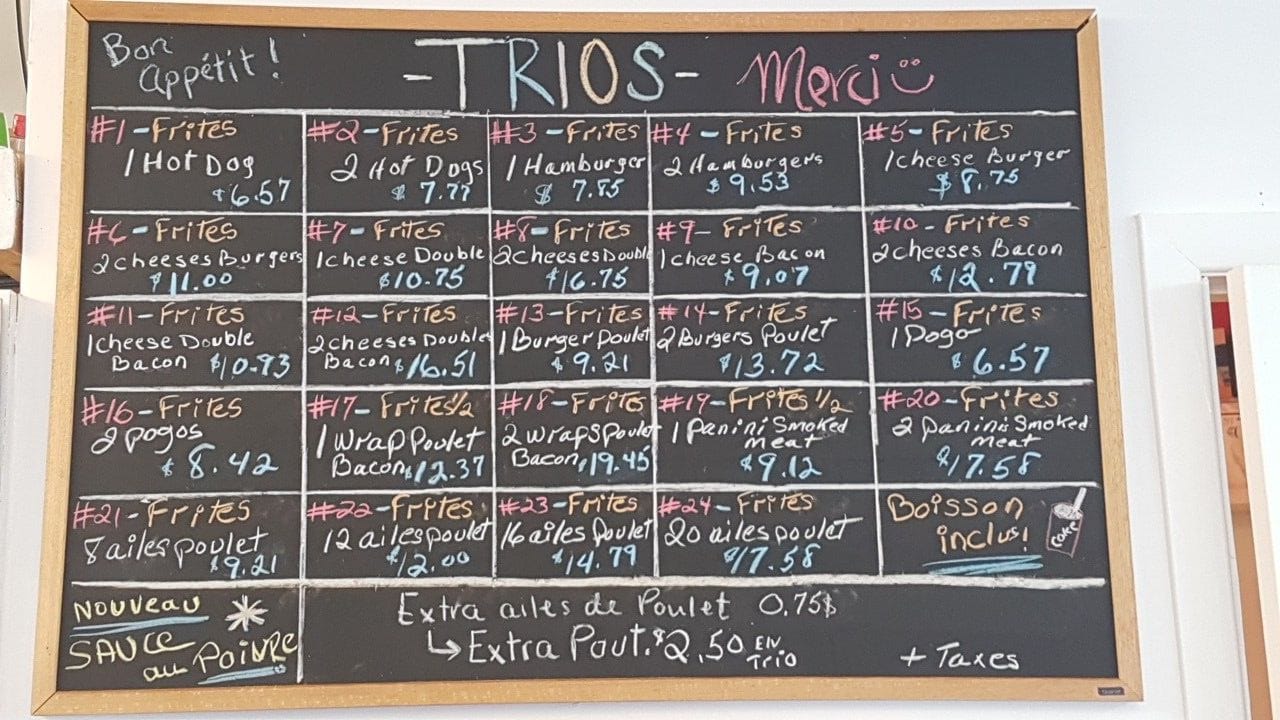 Bon appétit!
- TRIOS -
Merci
#1 - Frites
1 Hot Dog
$6.57
#2 - Frites
2 Hot Dogs
$7.77
#3 - Frites
1 Hamburger
$7.85
#4 - Frites
2 Hamburgers
$9.53
#5 - Frites
1 cheese Burger
$8.75
#6 - Frites
2 cheeses Burgers
$11.00
#7 - Frites
1 cheese Double
$10.75
#8 - Frites
2 cheeses Double
$16.75
#9 - Frites
1 cheese Bacon
$9.07
#10 - Frites
2 cheeses Bacon
$12.79
#11 - Frites
1 cheese Double
Bacon $10.93
#12 - Frites
2 cheeses Doubles
Bacon $16.51
#13 - Frites
1 Burger Poulet
$9.21
#14 - Frites
2 Burgers Poulet
$13.72
#15 - Frites
1 Pogo
$6.57
#16 - Frites
2 pogos
$8.42
#17 - Frites 1/2
1 Wrap Poulet
Bacon $12.37
#18 - Frites
2 wraps Poulet
Bacon $19.45
#19 - Frites 1/2
1 panini Smoked
meat
$9.12
#20 - Frites
2 paninis Smoked
meat
$17.58
#21 - Frites
8 ailes poulet
$9.21
#22 - Frites
12 ailes poulet
$12.00
#23 - Frites
16 ailes Poulet
$14.79
#24 - Frites
20 ailes poulet
$17.58
Boisson
inclus!
coke
Nouveau
SAUCE
au Poivre
Extra ailes de Poulet 0.75$
↳ Extra Pout. $2.50 EN Trio
+ Taxes